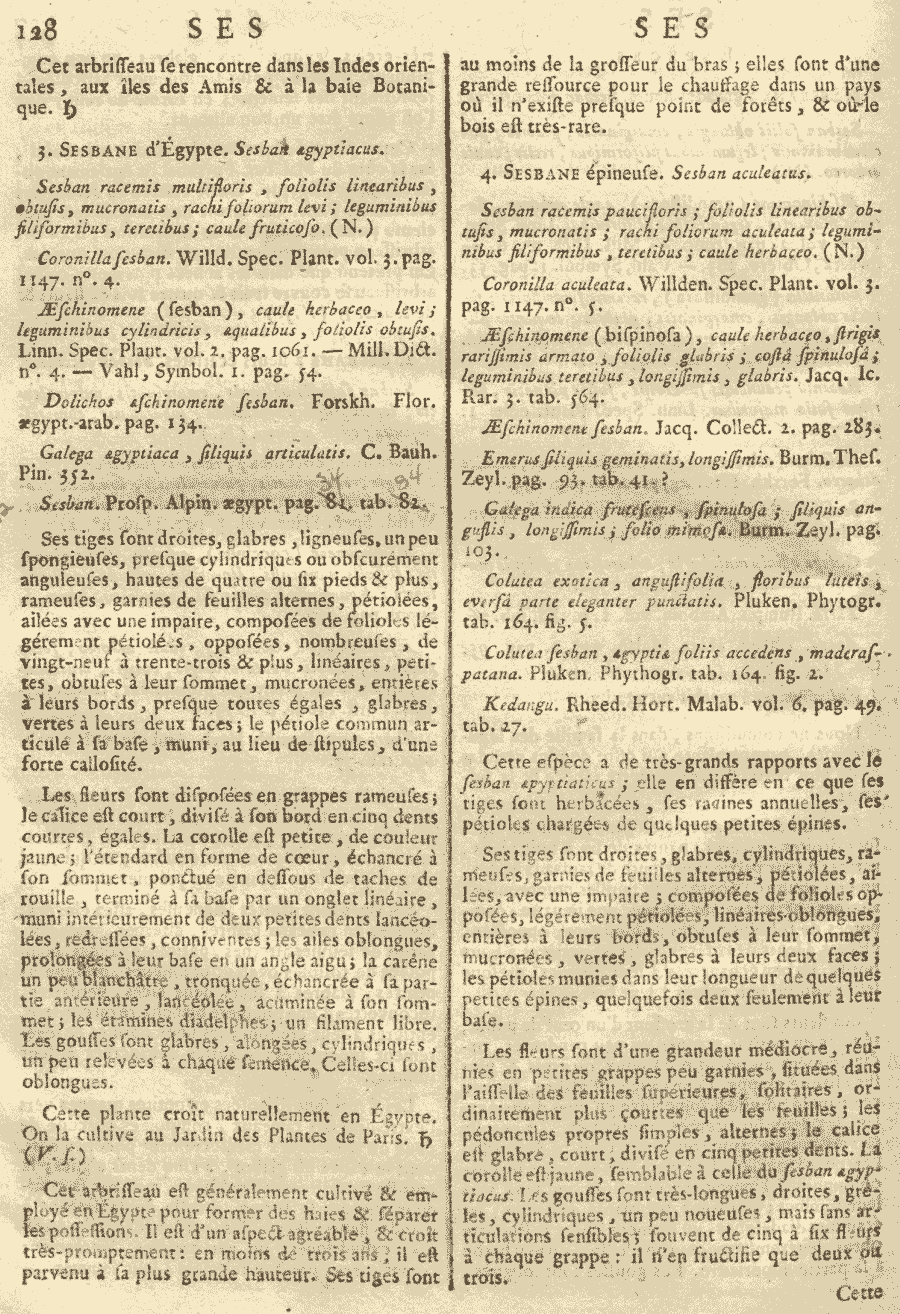 128 SES SES
Cet arbriſſeau ſe rencontre dans les Indes orien-
tales, aux îles des Amis & à la baie Botani-
que. ♄
3. SESBANE d'Égypte. Sesban ægyptiacus.
Sesban racemis multifloris, foliolis linearibus,
obtuſis, mucronatis, rachi foliorum levi; leguminibus
filiformibus, teretibus; caule fruticoſo. (N.)
Coronilla ſesban. Willd. Spec. Plant. vol. 3. pag.
1147. n°. 4.
Æſchinomene (ſesban), caule herbaceo, levi;
leguminibus cylindricis, æqualibus, foliolis obtuſis.
Linn. Spec. Plant. vol. 2. pag. 1061. — Mill. Dict.
n°. 4. — Vahl, Symbol. 1. pag. 54.
Dolichos æſchinomene ſesban. Forskh. Flor.
ægypt.-arab. pag. 134.
Galega ægyptiaca, ſiliquis articulatis. C. Bauh.
Pin. 352.
Sesban. Proſp. Alpin. ægypt. pag. 81. tab. 82.
Ses tiges ſont droites, glabres, ligneuſes, un peu
ſpongieuſes, preſque cylindriques ou obſcurément
anguleuſes, hautes de quatre ou ſix pieds & plus,
rameuſes, garnies de feuilles alternes, pétiolées,
ailées avec une impaire, compoſées de folioles lé-
gérement pétiolées, oppoſées, nombreuſes, de
vingt-neuf à trente-trois & plus, linéaires, peti-
tes, obtuſes à leur ſommet, mucronées, entières
à leurs bords, preſque toutes égales, glabres,
vertes à leurs deux faces; le pétiole commun ar-
ticulé à ſa baſe, muni, au lieu de ſtipules, d'une
forte calloſité.
Les fleurs ſont diſpoſées en grappes rameuſes;
le calice eſt court, diviſé à ſon bord en cinq dents
courtes, égales. La corolle eſt petite, de couleur
jaune; l'étendard en forme de cœur, échancré à
ſon ſommet, ponctué en deſſous de taches de
rouille, terminé à ſa baſe par un onglet linéaire,
muni intérieurement de deux petites dents lancéo-
lées, redreſſées, conniventes; les ailes oblongues,
prolongées à leur baſe en un angle aigu; la carêne
un peu blanchâtre, tronquée, échancrée à ſa par-
tie antérieure, lancéolée, acuminée à ſon ſom-
met; les étamines diadelphes; un filament libre.
Les gouſſes ſont glabres, alongées, cylindriques,
un peu relevées à chaque ſemence. Celles-ci ſont
oblongues.
Cette plante croît naturellement en Égypte.
On la cultive au Jardin des Plantes de Paris. ♄
(V. ſ.)
Cet arbriſſeau eſt généralement cultivé & em-
ployé en Égypte pour former des haies & ſéparer
les poſſeſſions. Il eſt d'un aſpect agréable, & croît
très-promptement: en moins de trois ans, il eſt
parvenu à ſa plus grande hauteur. Ses tiges ſont
au moins de la groſſeur du bras; elles ſont d'une
grande reſſource pour le chauffage dans un pays
où il n'exiſte preſque point de forêts, & où le
bois eſt très-rare.
4. SESBANE épineuſe. Sesban aculeatus.
Sesban racemis paucifloris; foliolis linearibus ob-
tuſis, mucronatis; rachi foliorum aculeata; legumi-
nibus filiformibus, teretibus; caule herbaceo. (N.)
Coronilla aculeata. Willden. Spec. Plant. vol. 3.
pag. 1147. n°. 5.
Æſchinomene (biſpinoſa), caule herbaceo, ſtrigis
rariſſimis armato, foliolis glabris; coſtâ ſpinuloſâ;
leguminibus teretibus, longiſſimis, glabris. Jacq. Ic.
Rar. 3. tab. 564.
Æſchinomene ſesban. Jacq. Collect. 2. pag. 283.
Emerus ſiliquis geminatis, longiſſimis. Burm. Theſ.
Zeyl. pag. 93. tab. 41.?
Galega indica fruteſcens, ſpinuloſa; ſiliquis an-
guſtis, longiſſimis; folio mimoſæ. Burm. Zeyl. pag.
103.
Colutea exotica, anguſtifolia, floribus luteis,
everſâ parte eleganter punctatis. Pluken. Phytogr.
tab. 164. fig. 5.
Colutea ſesban, ægyptiæ foliis accedens, maderaſ-
patana. Pluken. Phythogr. tab. 164. fig. 2.
Kedangu. Rheed. Hort. Malab. vol. 6. pag. 49.
tab. 27.
Cette eſpèce a de très-grands rapports avec le
ſesban æpyptiaticus; elle en diffère en ce que ſes
tiges ſont herbacées, ſes racines annuelles, ſes
pétioles chargées de quelques petites épines.
Ses tiges ſont droites, glabres, cylindriques, ra-
meuſes, garnies de feuilles alternes, pétiolées, ai-
lées, avec une impaire; compoſées de folioles op-
poſées, légérement pétiolées, linéaires-oblongues,
entières à leurs bords, obtuſes à leur ſommet,
mucronées, vertes, glabres à leurs deux faces;
les pétioles munies dans leur longueur de quelques
petites épines, quelquefois deux ſeulement à leur
baſe.
Les fleurs ſont d'une grandeur médiocre, réu-
nies en petites grappes peu garnies, ſituées dans
l'aiſſelle des feuilles ſupérieures, ſolitaires, or-
dinairement plus courtes que les feuilles; les
pédoncules propres ſimples, alternes; le calice
eſt glabre, court, diviſé en cinq petites dents. La
corolle eſt jaune, ſemblable à celle du ſesban ægyp-
tiacus. Les gouſſes ſont très-longues, droites, grê-
les, cylindriques, un peu noueuſes, mais ſans ar-
ticulations ſenſibles; ſouvent de cinq à ſix fleurs
à chaque grappe: il n'en fructifie que deux ou
trois.
Cette